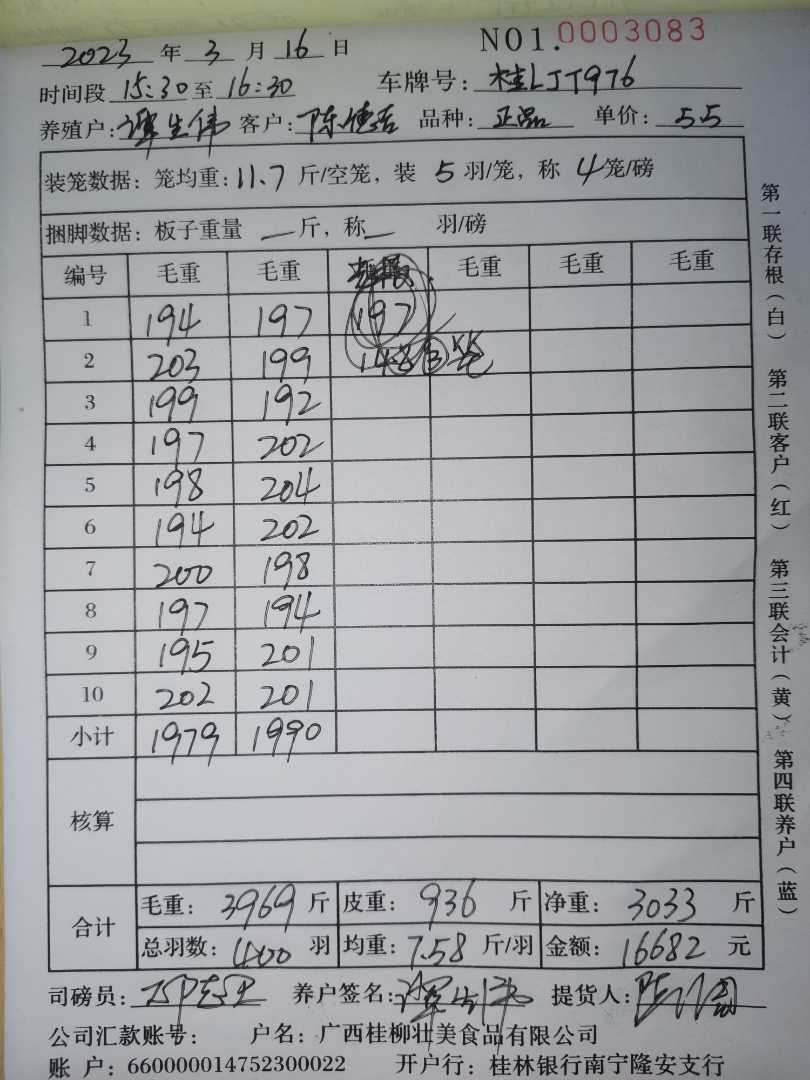 2023 年 3 月 16 日 NO1.0003083
时间段 15:30 至 16:30 车牌号: 桂LJT976
养殖户: 谭生伟 客户: 陈德 品种: 正品 单价: 5.5
装笼数据: 笼均重: 11.7 斤/空笼, 装 5 羽/笼, 称 4 笼/磅
捆脚数据: 板子重量 — 斤, 称 — 羽/磅
编号 毛重 毛重 毛重 毛重 毛重
1 194 197 197
2 203 199 148 ③
3 199 192
4 197 202
5 198 204
6 194 202
7 200 198
8 197 194
9 195 201
10 202 201
小计 1979 1990
核算
合计 毛重: 3969 斤 皮重: 936 斤 净重: 3033 斤
总羽数: 400 羽 均重: 7.58 斤/羽 金额: 16682 元
司磅员: 养户签名: 谭生伟 提货人: 陈
公司汇款账号: 户名: 广西桂柳壮美食品有限公司
账 户: 660000014752300022 开户行: 桂林银行南宁隆安支行
第一联存根(白) 第二联客户(红) 第三联会计(黄) 第四联养户(蓝)